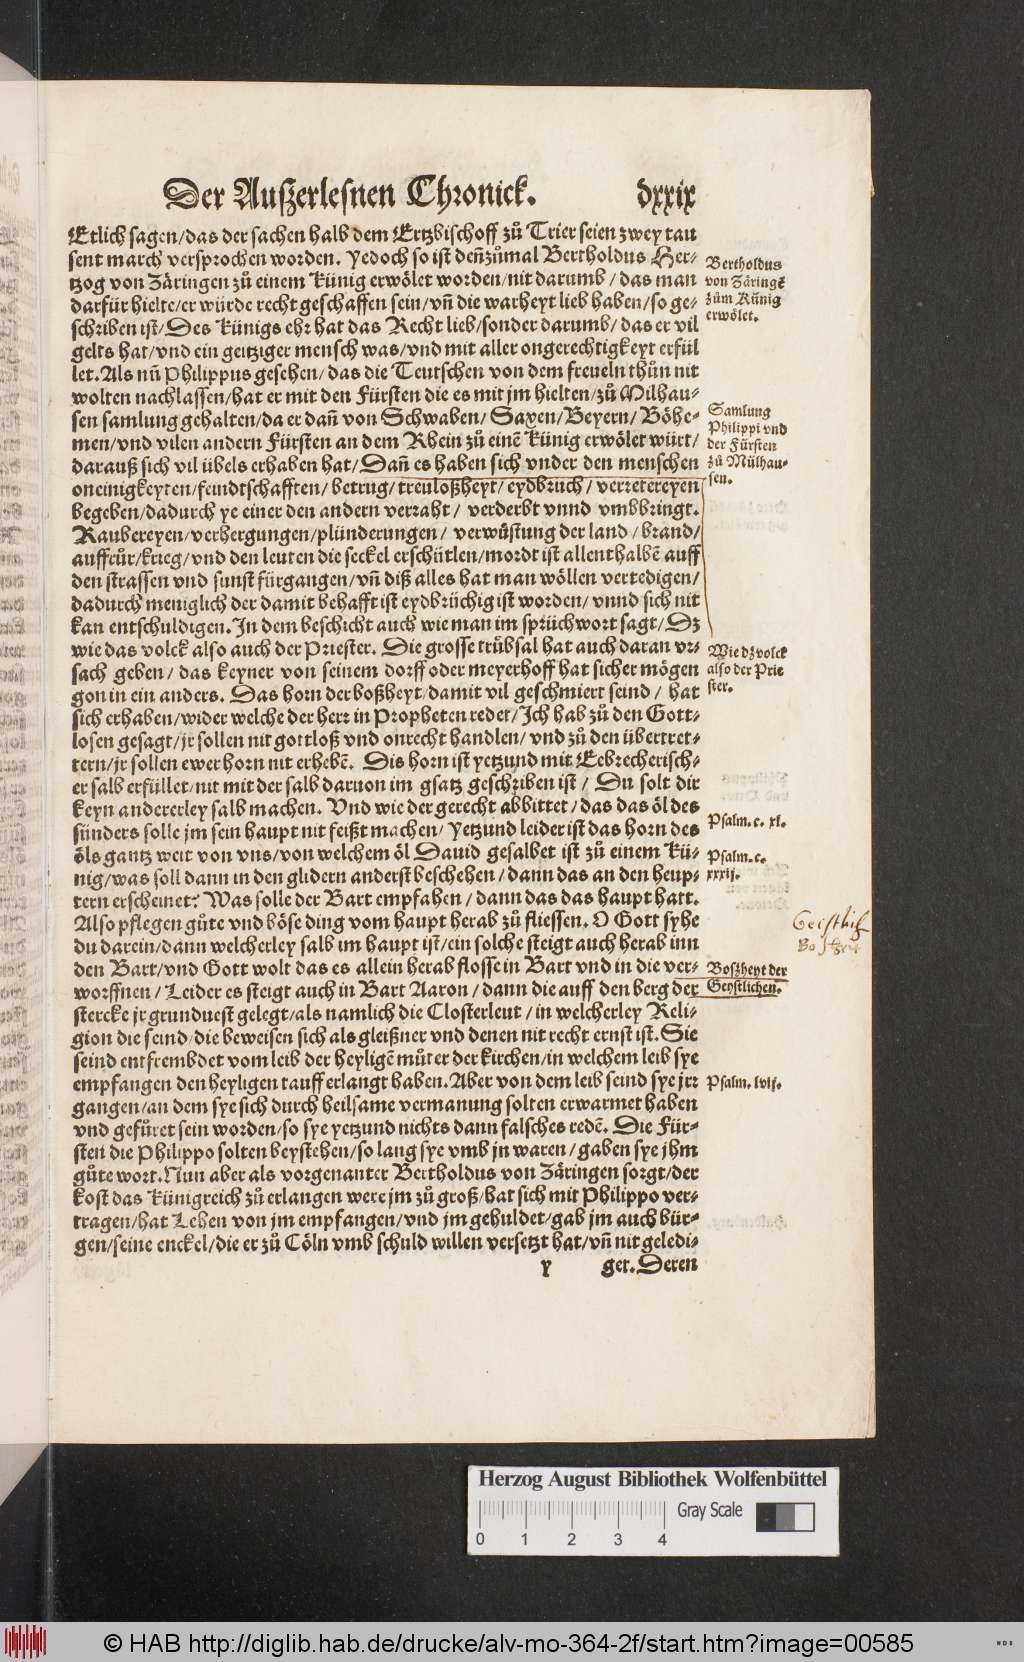 Der Außerlesnen Chronick. dxxix
Etlich sagen/das der sachen halb dem Ertzbischoff zů Trier seien zwey tau
sent march versprochen worden. Yedoch so ist deñzůmal Bertholdus Her-
tzog von Zäringen zů einem Künig erwölet worden/nit darumb/das man
darfür hielte/er würde recht geschaffen sein/vñ die warheyt lieb haben/so ge-
schriben ist/Des Künigs ehr hat das Recht lieb/sonder darumb/das er vil
gelts hat/vnd ein geitziger mensch was/vnd mit aller ongerechtigkeyt erfül
let. Als nũ Philippus gesehen/das die Teutschen von dem freueln thůn nit
wolten nachlassen/hat er mit den Fürsten die es mit jm hielten/zů Milhau-
sen samlung gehalten/da er dañ von Schwaben/Saxen/Beyern/Böhe-
men/vnd vilen andern Fürsten an dem Rhein zů einẽ Künig erwölet würt/
darauß sich vil übels erhaben hat/Dañ es haben sich vnder den menschen
oneinigkeyten/feindtschafften/betrug/treuloßheyt/eydbruch/verretereyen
begeben/dadurch ye einer den andern verraht/verderbt vnnd vmbbringt.
Raubereyen/verhergungen/plünderungen/verwüstung der land/brand/
auffrůr/krieg/vnd den leuten die seckel erschütlen/mordt ist allenthalbẽ auff
den strassen vnd sunst fürgangen/vñ diß alles hat man wöllen vertedigen/
dadurch meniglich der damit behafft ist eydbrüchig ist worden/vnnd sich nit
kan entschuldigen. In dem beschicht auch wie man im sprüchwort sagt/Dz
wie das volck also auch der Priester. Die grosse trůbsal hat auch daran vr-
sach geben/das keyner von seinem dorff oder meyerhoff hat sicher mögen
gon in ein anders. Das horn der boßheyt/damit vil geschmiert seind/hat
sich erhaben/wider welche der herr in Propheten redet/Ich hab zů den Gott-
losen gesagt/jr sollen nit gottloß vnd onrecht handlen/vnd zů den übertret-
tern/jr sollen ewer horn nit erhebẽ. Dis horn ist yetzund mit Eebrecherisch-
er salb erfüllet/nit mit der salb daruon im gsatz geschriben ist/Du solt dir
keyn andererley salb machen. Vnd wie der gerecht abbittet/das das öl des
sünders solle jm sein haupt nit feißt machen/Yetzund leider ist das horn des
öls gantz weit von vns/von welchem öl Dauid gesalbet ist zů einem Kü-
nig/was soll dann in den glidern anderst beschehen/dann das an den heup-
tern erscheinet? Was solle der Bart empfahen/dann das das haupt hatt.
Also pflegen gůte vnd böse ding vom haupt herab zů fliessen. O Gott syhe
du darein/dann welcherley salb im haupt ist/ein solche steigt auch herab inn
den Bart/vnd Gott wolt das es allein herab flosse in Bart vnd in die ver-
worffnen/Leider es steigt auch in Bart Aaron/dann die auff den berg der
stercke jr grunduest gelegt/als namlich die Closterleut/in welcherley Reli-
gion die seind/die beweisen sich als gleißner vnd denen nit recht ernst ist. Sie
seind entfrembdet vom leib der heyligẽ můter der kirchen/in welchem leib sye
empfangen den heyligen tauff erlangt haben. Aber von dem leib seind sye jrr
gangen/an dem sye sich durch heilsame vermanung solten erwarmet haben
vnd gefůret sein worden/so sye yetzund nichts dann falsches redẽ. Die Für-
sten die Philippo solten beystehen/so lang sye vmb jn waren/gaben sye jhm
gůte wort. Nun aber als vorgenanter Bertholdus von Zäringen sorgt/der
kost das Künigreich zů erlangen were jm zů groß/hat sich mit Philippo ver-
tragen/hat Lehen von jm empfangen/vnd jm gehuldet/gab jm auch bür-
gen/seine enckel/die er zů Cöln vmb schuld willen versetzt hat/vñ nit geledi-
y get. Deren
Bertholdus
von Zäringẽ
zům Künig
erwölet.
Samlung
Philippi vnd
der Fürsten
zů Mülhau-
sen.
Wie dz volck
also der Prie
ster.
Psalm. c. xl.
Psalm. c.
xxxij.
Geistlich
Boßheyt der
Geystlichen.
Psalm. lvij.
Herzog August Bibliothek Wolfenbüttel
Gray Scale
0 1 2 3 4
© HAB http://diglib.hab.de/drucke/alv-mo-364-2f/start.htm?image=00585